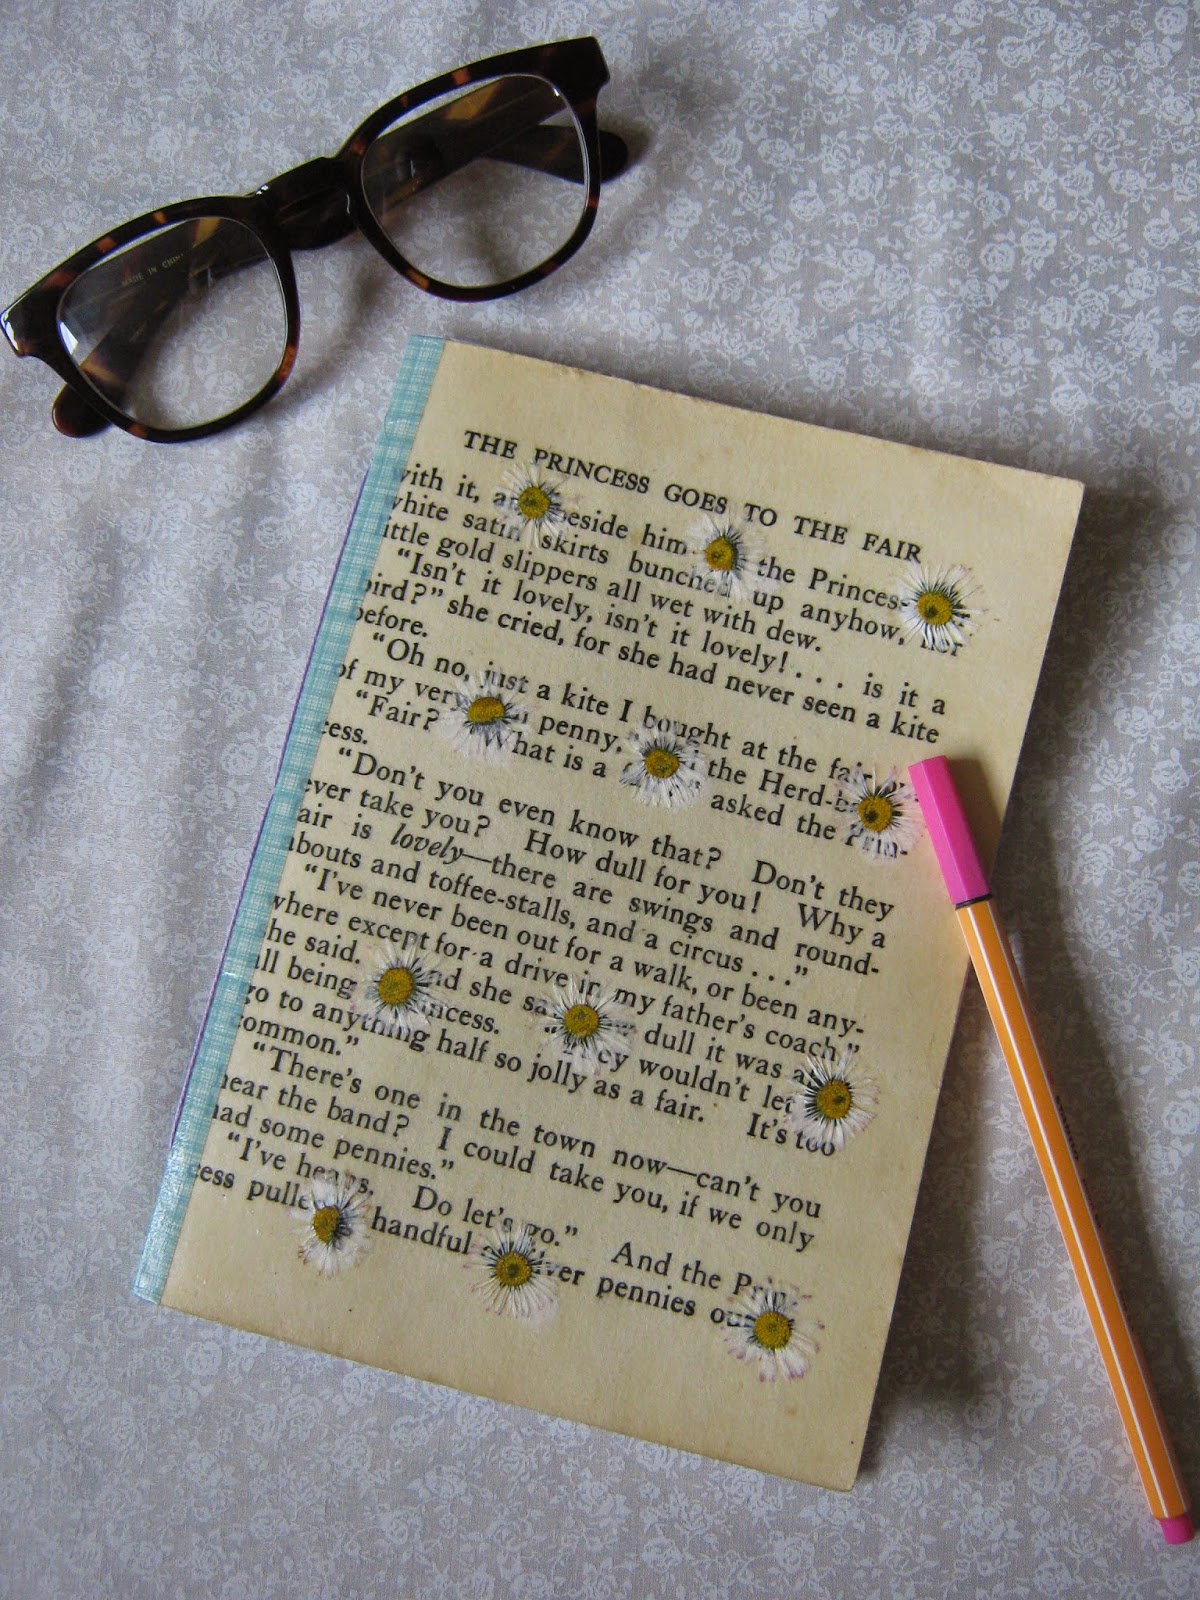 MADE IN CHINA
THE PRINCESS GOES TO THE FAIR
with it, beside him the Princess
white satin skirts bunched up anyhow, her
little gold slippers all wet with dew.
"Isn't it lovely, isn't it lovely! . . . is it a
bird?" she cried, for she had never seen a kite
before.
"Oh no, just a kite I bought at the fair
of my very penny," the Herd-
"Fair? What is a asked the Prin-
cess.
"Don't you even know that? Don't they
ever take you? How dull for you! Why a
fair is lovely—there are swings and round-
abouts and toffee-stalls, and a circus . . ."
"I've never been out for a walk, or been any-
where except for a drive in my father's coach,"
she said. she dull it was
all being Princess. "They wouldn't let
go to anything half so jolly as a fair. It's too
common."
"There's one in the town now—can't you
hear the band? I could take you, if we only
had some pennies."
"I've heaps. Do let's go." And the Prin-
cess pulled handful silver pennies